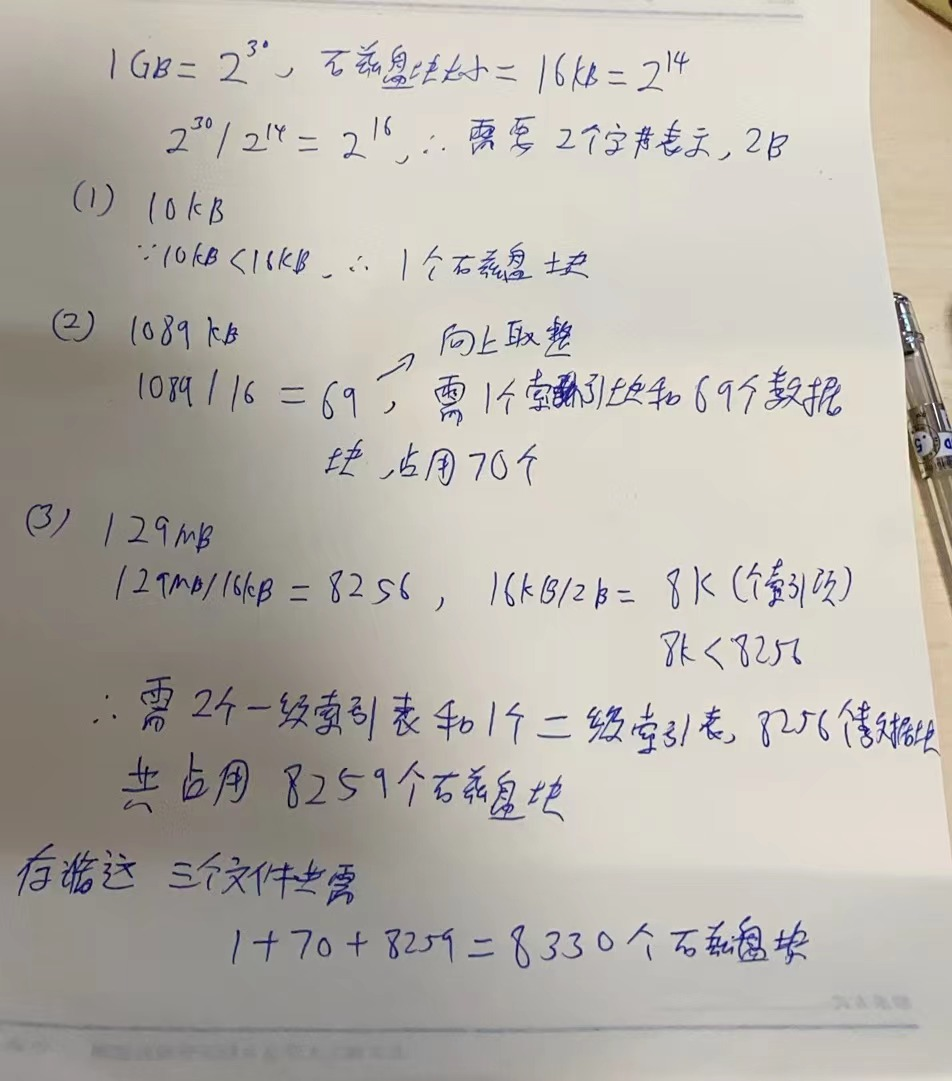 1GB = 2³⁰, 磁盘块大小 = 16KB = 2¹⁴
2³⁰/2¹⁴ = 2¹⁶, ∴ 需要 2个字节表示, 2B
(1) 10KB
∵10KB<16KB, ∴ 1个磁盘块
(2) 1089KB
→ 向上取整
1089/16 = 69, 需1个索引块和69个数据
块, 占用70个
(3) 129MB
129MB/16KB = 8256, 16KB/2B = 8K (个索引项)
8K<8256
∴ 需2个一级索引表和1个二级索引表, 8256个数据块
共占用 8259个磁盘块
存储这 三个文件共需
1+70+8259=8330个磁盘块